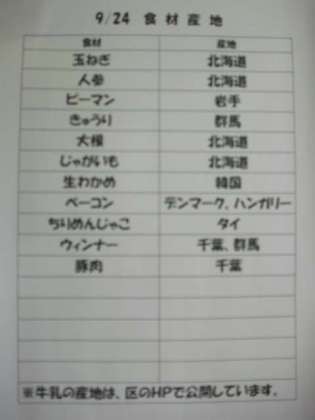 9/24 食材産地
食材 産地
玉ねぎ 北海道
人参 北海道
ピーマン 岩手
きゅうり 群馬
大根 北海道
じゃがいも 北海道
生わかめ 韓国
ベーコン デンマーク、ハンガリー
ちりめんじゃこ タイ
ウィンナー 千葉、群馬
豚肉 千葉
※牛乳の産地は、区のHPで公開しています。